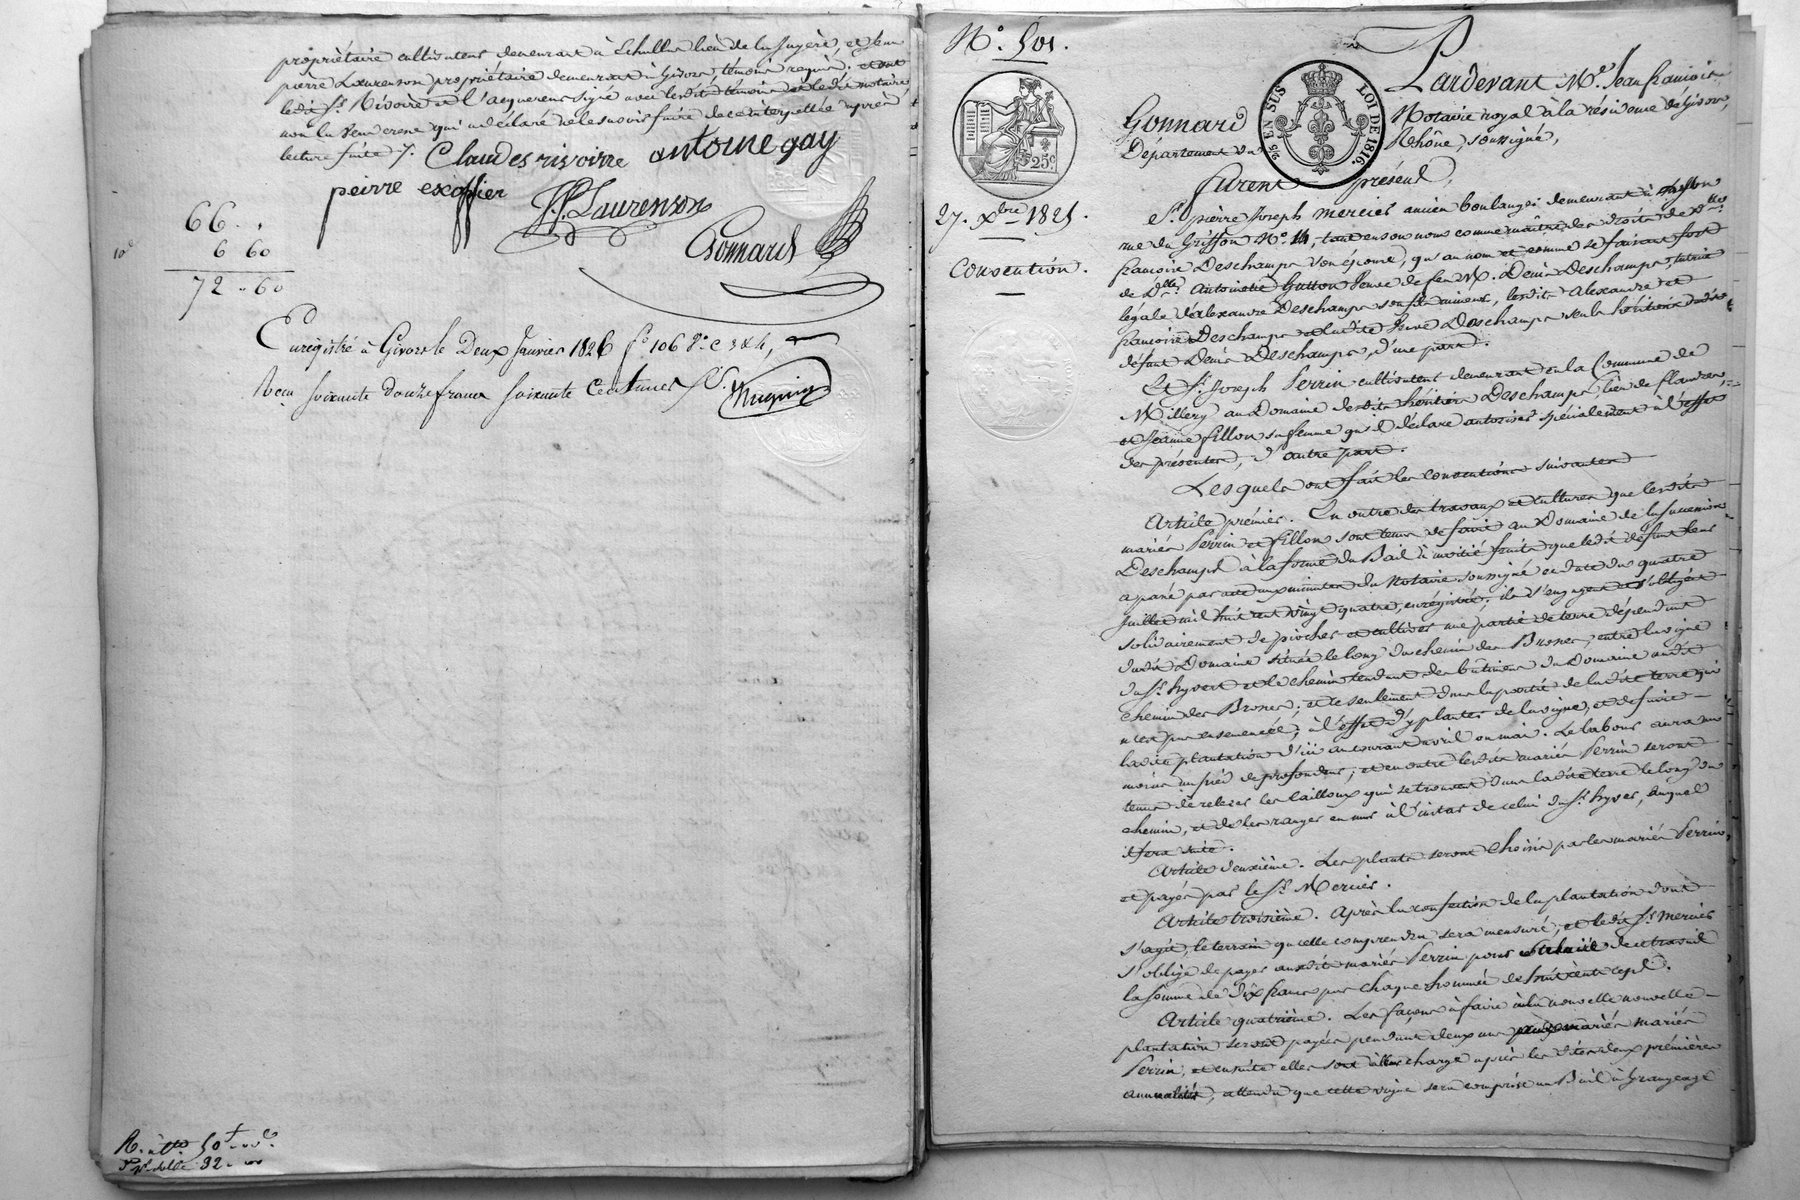 propriétaire cultivateur demeurant à Echallas lieu de la Jugère, et Jean
pierre Laurenson propriétaire demeurant à Givors, témoins requis. et ont
ledit Sr. Rivoire et l'acquereur signé avec lesdits témoins et ledit notaire
non la venderesse qui a déclaré ne le savoir faire de ce interpellée après
lecture faite 7.
Claudes rivoirre antoine gay
peirre exoffier
J.P. Laurenson
Gonnard
66 . .
10e 6 60
72 . 60
Enregistré à Givors le Deux Janvier 1826 fo 106 Vo. C 3 & 4,
Reçu soixante douze francs soixante Centimes
No. 501.
25c
2/5 EN SUS LOI DE 1816.
27. Xbre 1825.
Convention.
Pardevant Me. Jean francois
Gonnard Notaire royal à la résidence de Givors,
Département du Rhône, soussigné,
furent présens,
Sr. pierre Joseph Mercier ancien boulanger demeurant à
rue du Griffon No. 14, tant en son nom comme maître des droits de Dlle
francoise Deschamps son épouse, qu'au nom et comme se faisant fort
de Dlle. Antoinette Gutton Veuve de feu M. Denis Deschamps, tutrice
légale d'Alexandre Deschamps son fils mineur, lesdits Alexandre et
francoise Deschamps et ladite Veuve Deschamps seuls héritiers dudit
défunt Denis Deschamps, d'une part.
Et Sr. Joseph Perrin cultivateur demeurant en la Commune de
Millery au Domaine desdits héritiers Deschamps, lieu de flandres,
et Jeanne fillon sa femme qu'il déclare autoriser spécialement à l'effet
des présentes, d'autre part.
Lesquels ont fait les conventions suivantes
Article prémier. En outre des travaux et cultures que lesdits
mariés Perrin et fillon sont tenus de faire au Domaine de la succession
Deschamps à la forme du Bail à moitié fruits que ledit défunt leur
a passé par acte aux minutes du Notaire soussigné en date du quatre
juillet mil huit cent vingt quatre, enrégistré; ils s'engagent et s'obligent
solidairement de piocher et cultiver une partie de terre dépendant
dudit Domaine située le long du chemin des Brosses, entre la vigne
du Sr. hyvert et le chemin tendant des bâtimens du Domaine audit
chemin des Brosses; et ce seulement dans la partie de ladite terre qui
n'est pas ensemencée; à l'effet d'y planter de la vigne, et de faire
ladite plantation d'ici au courant avril ou mai. Le labour aura au
moins un pied de profondeur; et en outre lesdits mariés Perrin seront
tenus de relever les cailloux qui se trouvent dans ladite terre le long du
chemin, et de les ranger en mur à l'instar de celui du Sr. hyver, auquel
il fera suite.
Article deuxième. Les plants seront choisis par les mariés Perrin,
et payés par le Sr. Mercier.
Article troisième. Après la confection de la plantation dont
s'agit, le terrain qu'elle comprendra sera mensuré, et ledit Sr. Mercier
s'oblige de payer auxdits mariés Perrin pour salaire de ce travail
la somme de dix francs par chaque hommée de huit cents ceps.
Article quatrième. Les façons à faire à la nouvelle nouvelle
plantation seront payées pendant deux ans aux mariés mariés
Perrin, et ensuite elles sont à leur charge après les dites deux prémières
années, attendu que cette vigne sera comprise au Bail à Grangeage